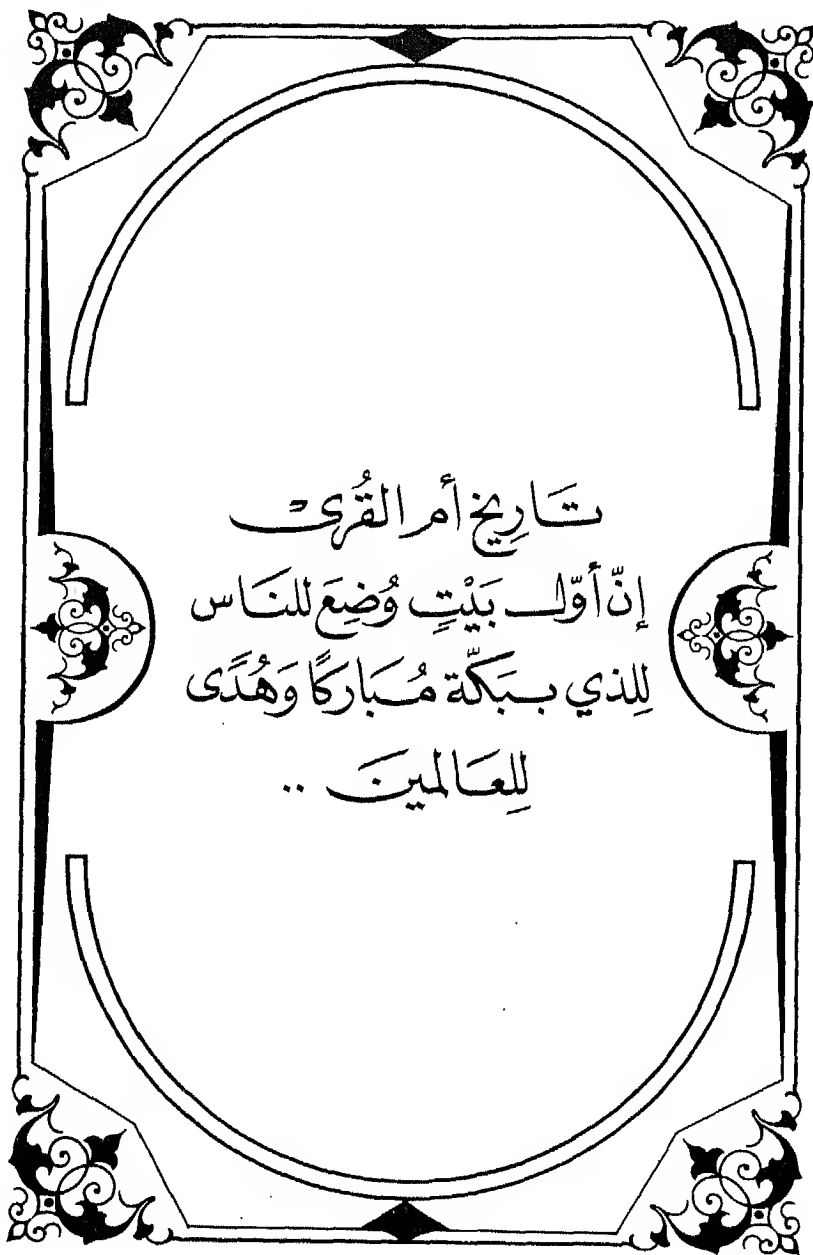 تَاريخ أم القُرى
إنّ أوّل بَيْتٍ وُضِعَ للنَاس
لِلذي بِبَكّة مُبَاركًا وَهُدًى
لِلعَالمينَ ..